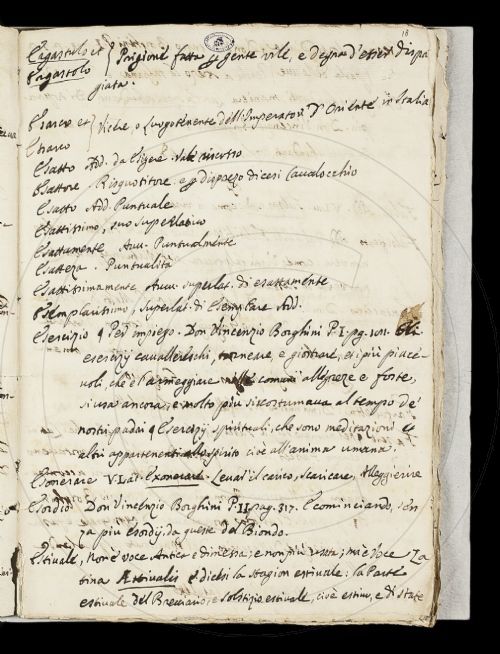 18
Ergastulo et } Prigione fatta p gente vile, e degna d'esser dispre
Ergastolo
giata.
Esarco et } Viche o Luogotenente dell'Imperatori d'Oriente in Italia
Esarco
Esatto Add. da Esigere. Vale riscosso
Esattore Riscuotitore, e p disprezo dicesi Cavalocchio
Esatto Add. Puntuale
Esattissimo, suo superlativo
Esattamente Avv. Puntualmente
Esatteza. Puntualità
Esattissimamente Avv. superlat. di esattamente
Esemplarissimo, superlat. di Esemplare Add.
Esercizio q Per impiego. Don Vincenzio Borghini P. I. pg. 101. Gli
esercizj cavallereschi, torneare, e giostrare, et i più piace-
voli, che è l'armeggiare nelle comuni allegreze e feste,
si usa ancora, e molto più si costumava al tempo de
nostri padri q Esercizj spirituali, che sono meditazioni et
altri appartenenti allo spirito cioè all'anima umana.
Esonerare V. Lat. Exonerare. Levar il carico, scaricare, Alleggerire
Esordio Don Vincenzio Borghini P. II. pag. 317. E cominciando, sen
za più esordj, da queste del Biondo.
Estivale, Non è voce Antica e dimessa; e non più usata; ma è voce La
tina Æstivalis e dicesi la stagion estivale: la Parte
estivale del Breviario, e solstizio estivale, cioè estivo, e di state